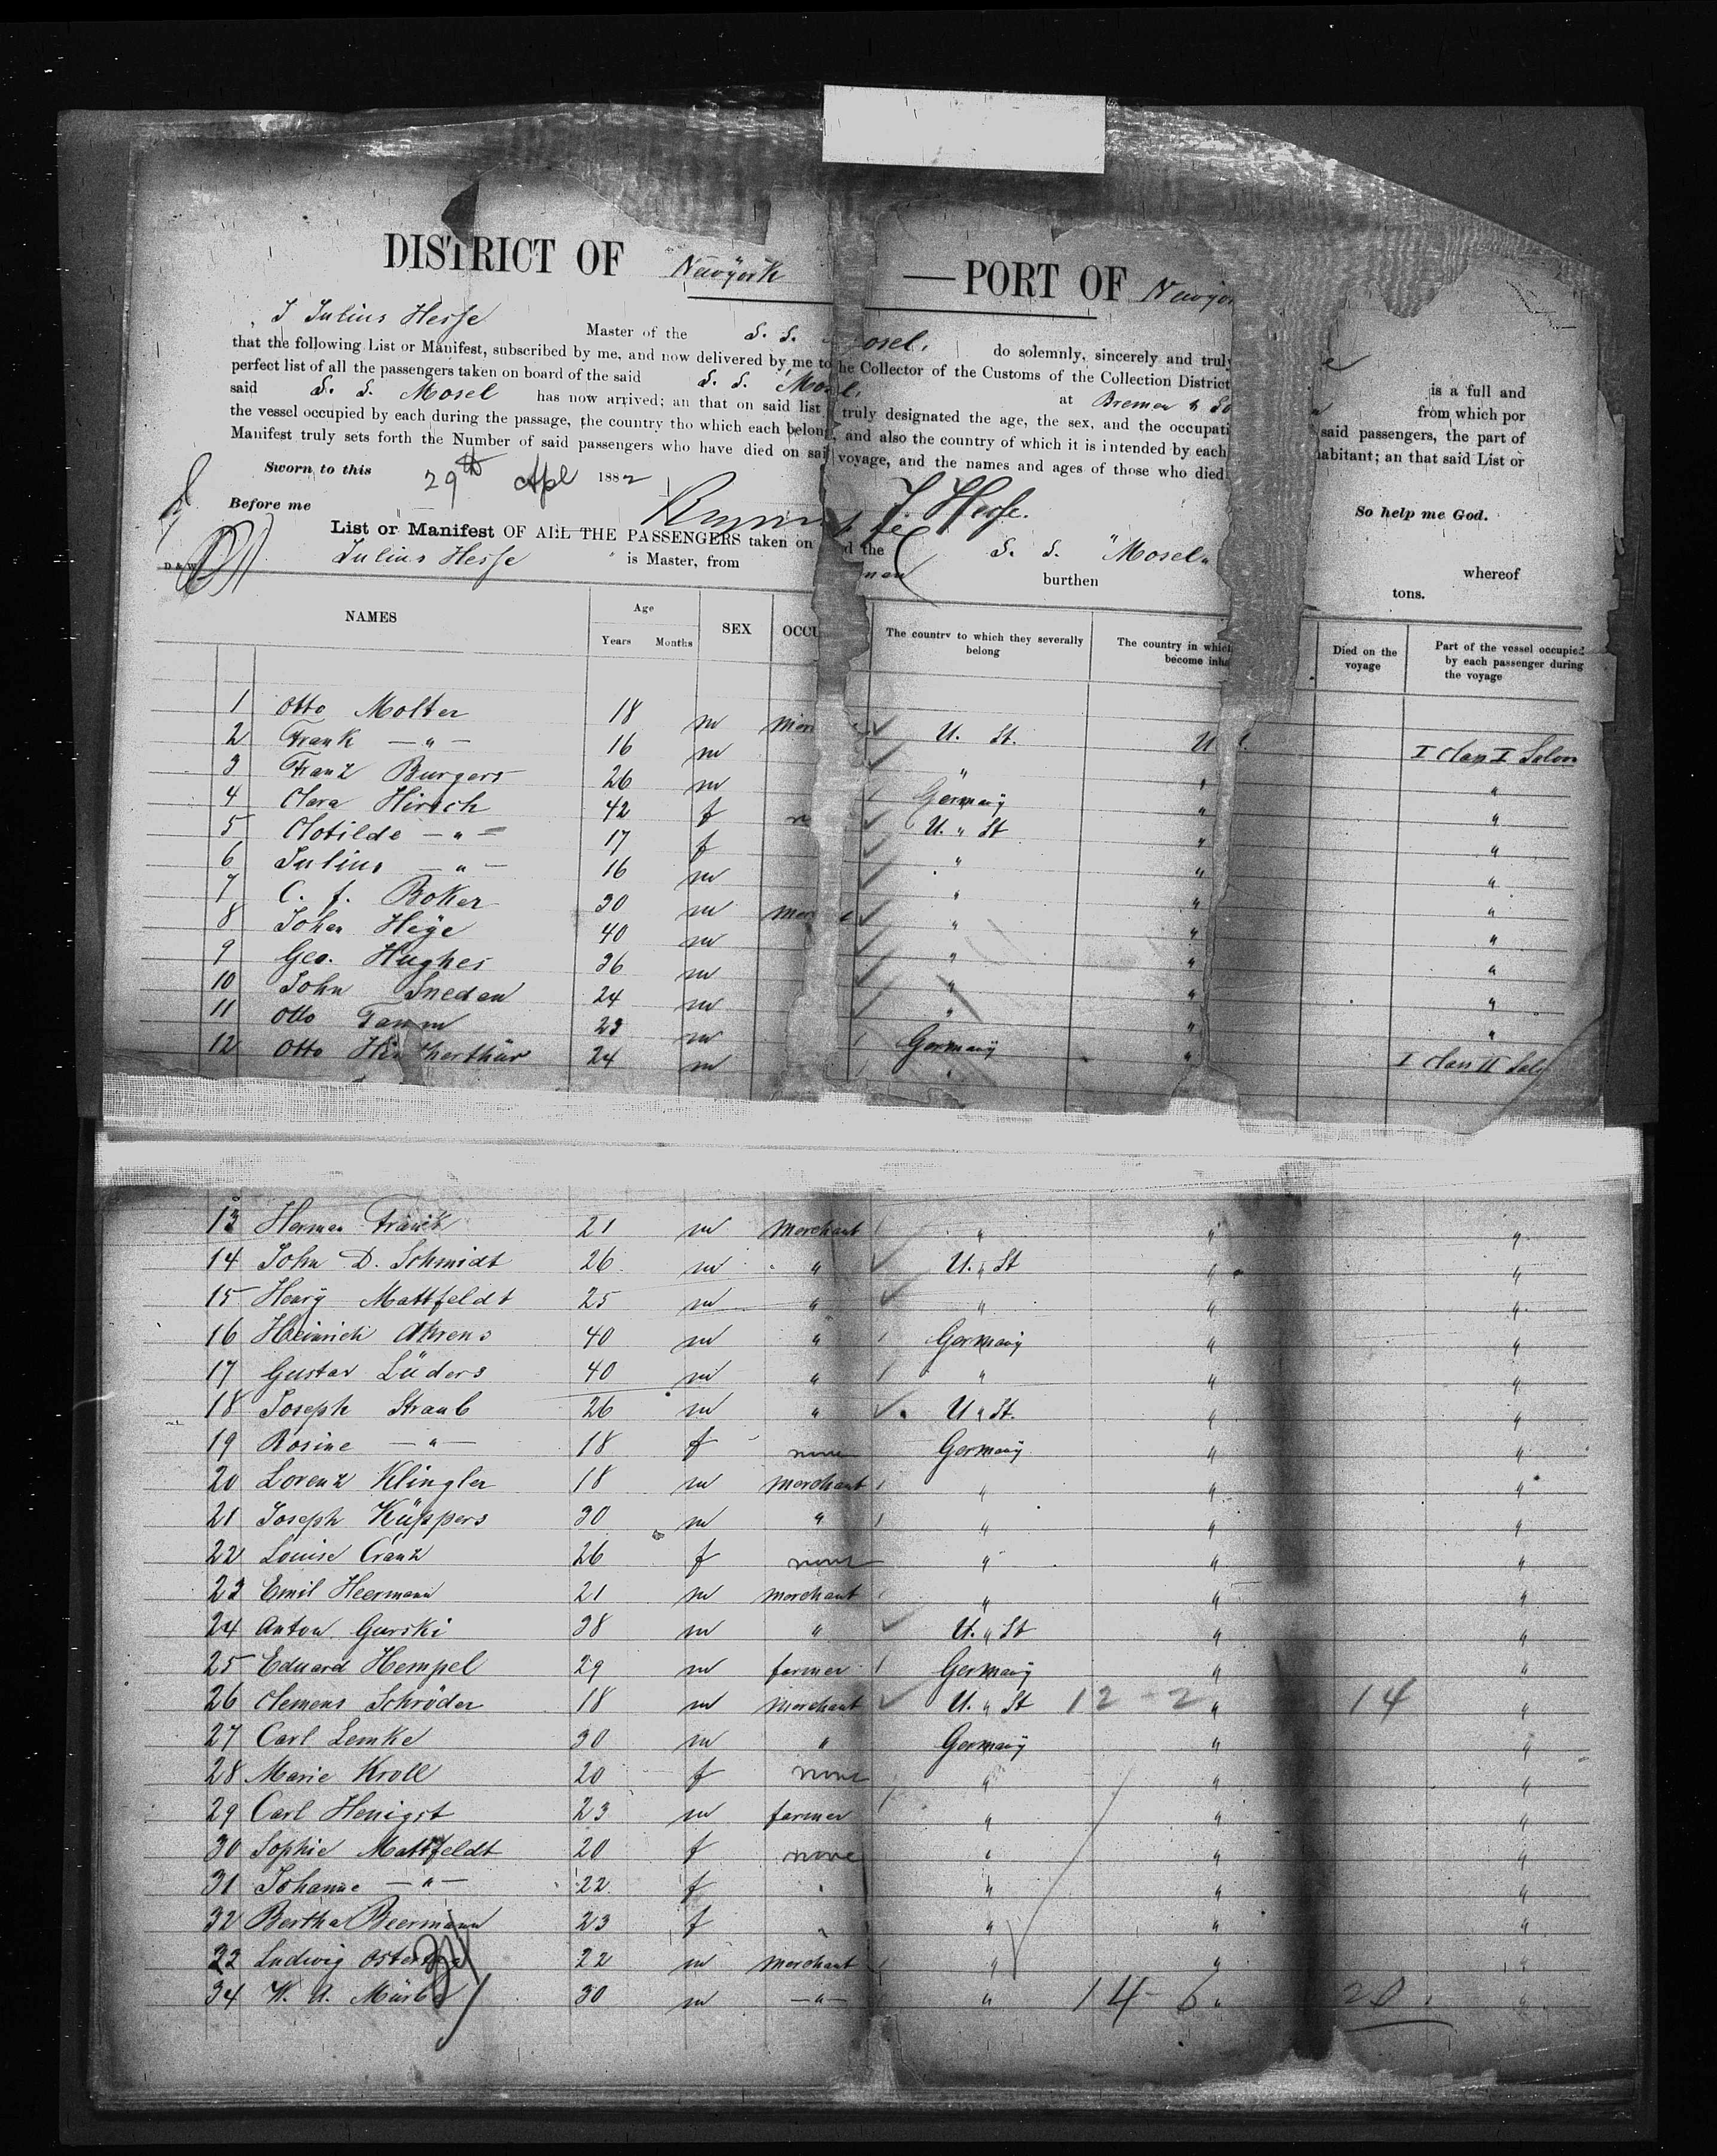 DISTRICT OF Newyork — PORT OF Newyor
I Julius Hesse Master of the S. S. Mosel. do solemnly, sincerely and truly
that the following List or Manifest, subscribed by me, and now delivered by me to the Collector of the Customs of the Collection District
perfect list of all the passengers taken on board of the said S. S. Mosel. at Bremen & So is a full and
said S. S. Mosel has now arrived; an that on said list truly designated the age, the sex, and the occupati from which por
the vessel occupied by each during the passage, the country tho which each belong, and also the country of which it is intended by each said passengers, the part of
Manifest truly sets forth the Number of said passengers who have died on said voyage, and the names and ages of those who died habitant; an that said List or
Sworn to this 29th Apl 1882 J. Hesse. So help me God.
Before me
List or Manifest OF ALL THE PASSENGERS taken on d the S. S. "Mosel" whereof
Julius Hesse " is Master, from men burthen tons.
D & W
NAMES Age Years Months SEX OCCU The country to which they severally belong The country in which become inha Died on the voyage Part of the vessel occupied by each passenger during the voyage
1 Otto Molter 18 m Mer U. St. U I Class I Salon
2 Frank —"— 16 m " " "
3 Franz Burgers 26 m Germany " "
4 Clara Hirsch 42 f n U. " St " "
5 Clotilde —"— 17 f " " "
6 Julius —"— 16 m " " "
7 C. f. Boker 30 m Mer " " "
8 Johen Hege 40 m " " "
9 Geo. Hughes 36 m " " "
10 John Sneden 24 m " " "
11 Otto Tamm 23 m Germany " I Class II Salo
12 Otto Hin therthür 24 m " "
13 Herman Franck 21 m Merchant " " "
14 John D. Schmidt 26 m " U. " St " "
15 Henry Mattfeldt 25 m " " " "
16 Heinrich Ahrens 40 m " Germany " "
17 Gustav Lüders 40 m " " " "
18 Joseph Straub 26 m " U " St. " "
19 Rosine —"— 18 f none Germany " "
20 Lorenz Klingler 18 m Merchant " " "
21 Joseph Küppers 30 m " " " "
22 Louise Cranz 26 f none " " "
23 Emil Heermann 21 m Merchant " " "
24 Anton Gurski 38 m " U. " St " "
25 Eduard Hempel 29 m farmer Germany " "
26 Clemens Schröder 18 m Merchant U. " St 12 - 2 " 14 "
27 Carl Lemke 30 m " Germany " "
28 Marie Kroll 20 f none " " "
29 Carl Henigst 23 m farmer " " "
30 Sophie Mattfeldt 20 f none " " "
31 Johanne —"— 22 f " " " "
32 Bertha Beermann 23 f " " " "
33 Ludwig 22 m Merchant " " "
34 W. A. 30 m —"— " 14 - 6 " 20 "